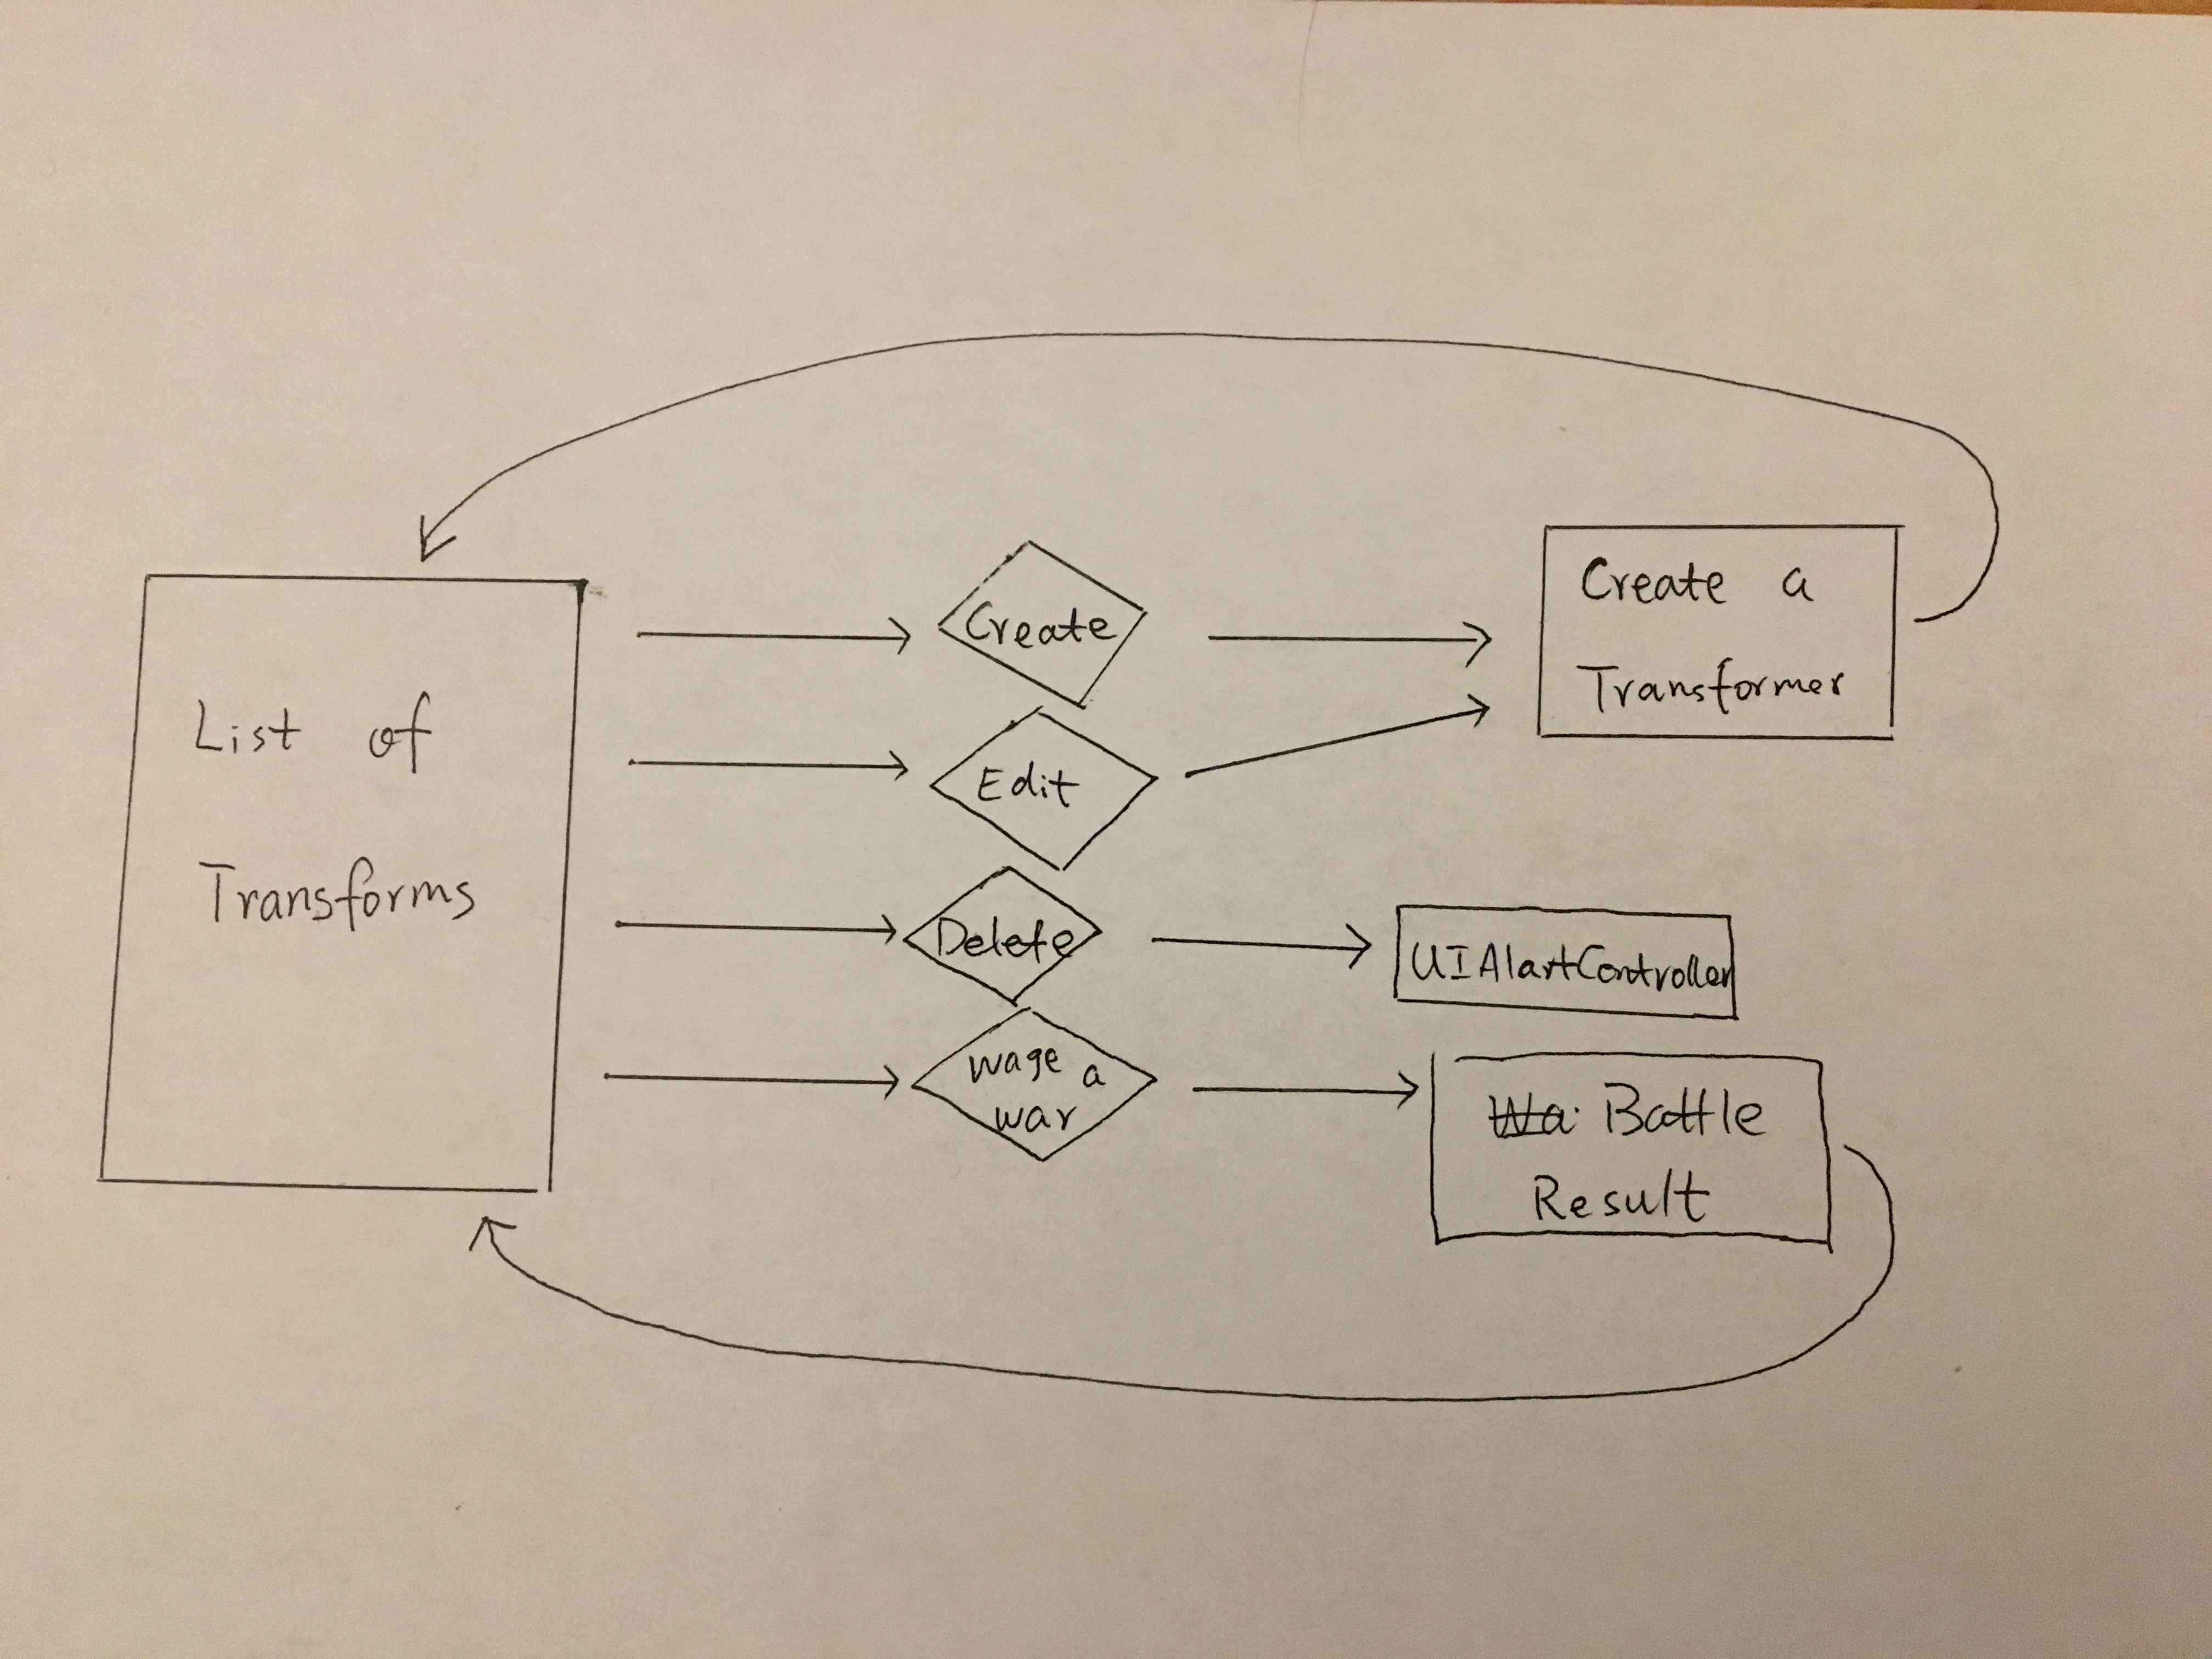 List of
Transforms
Create
Edit
Delete
wage a
war
Create a
Transformer
UIAlartController
Wa Battle
Result